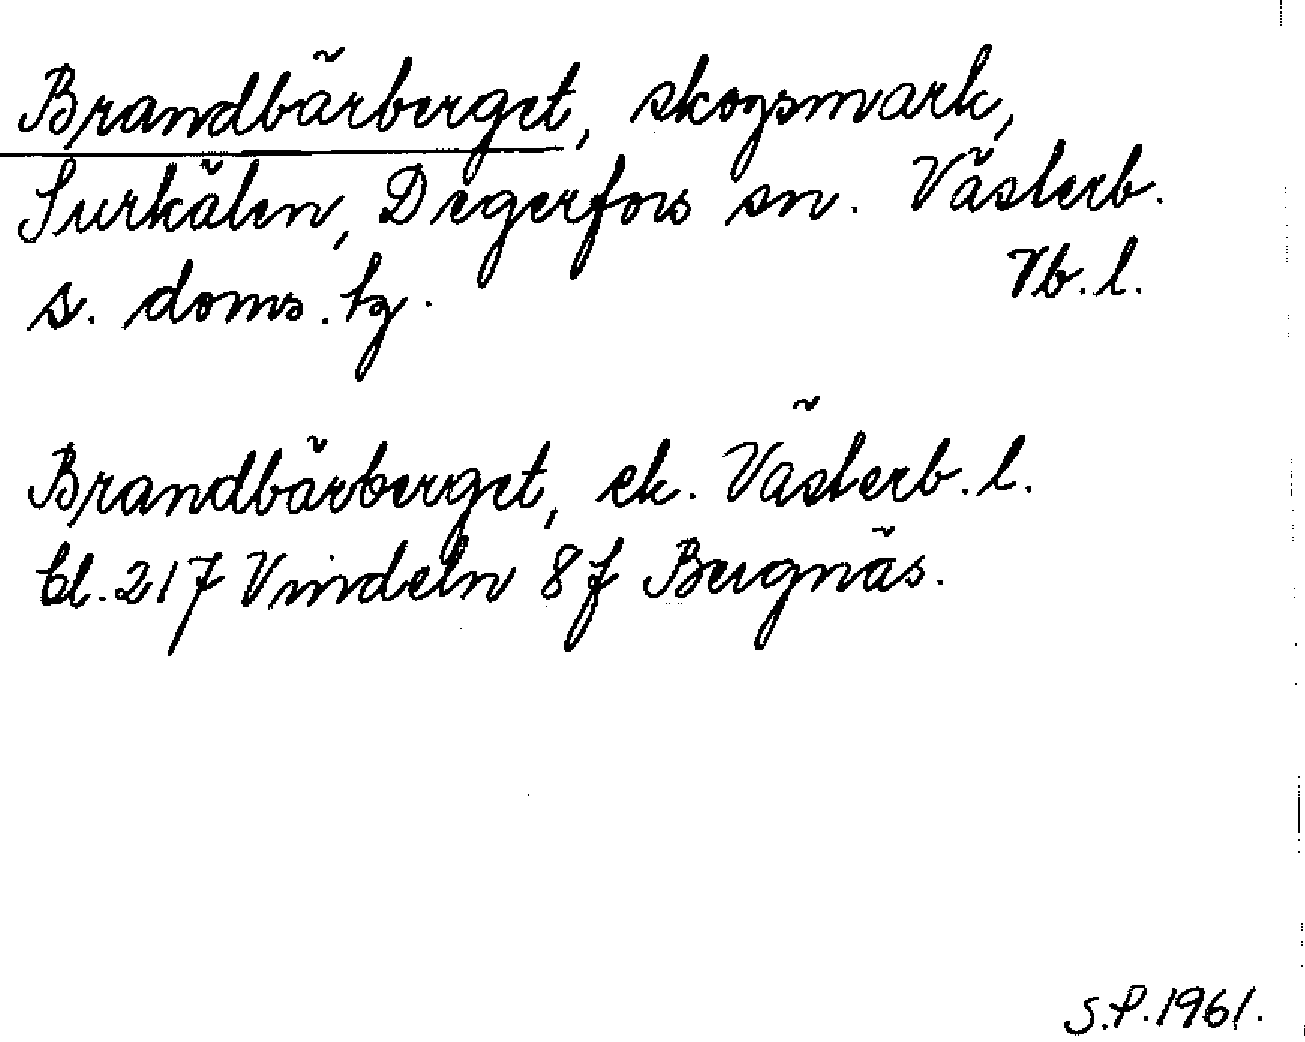 Brandbärberget, skogsmark,
Surkälen, Degerfors sn. Västerb.
s. doms. tg. Vb. l.
Brandbärberget, ek. Västerb. l.
bl. 217 Vindeln 8f Bergnäs.
S.P. 1961.